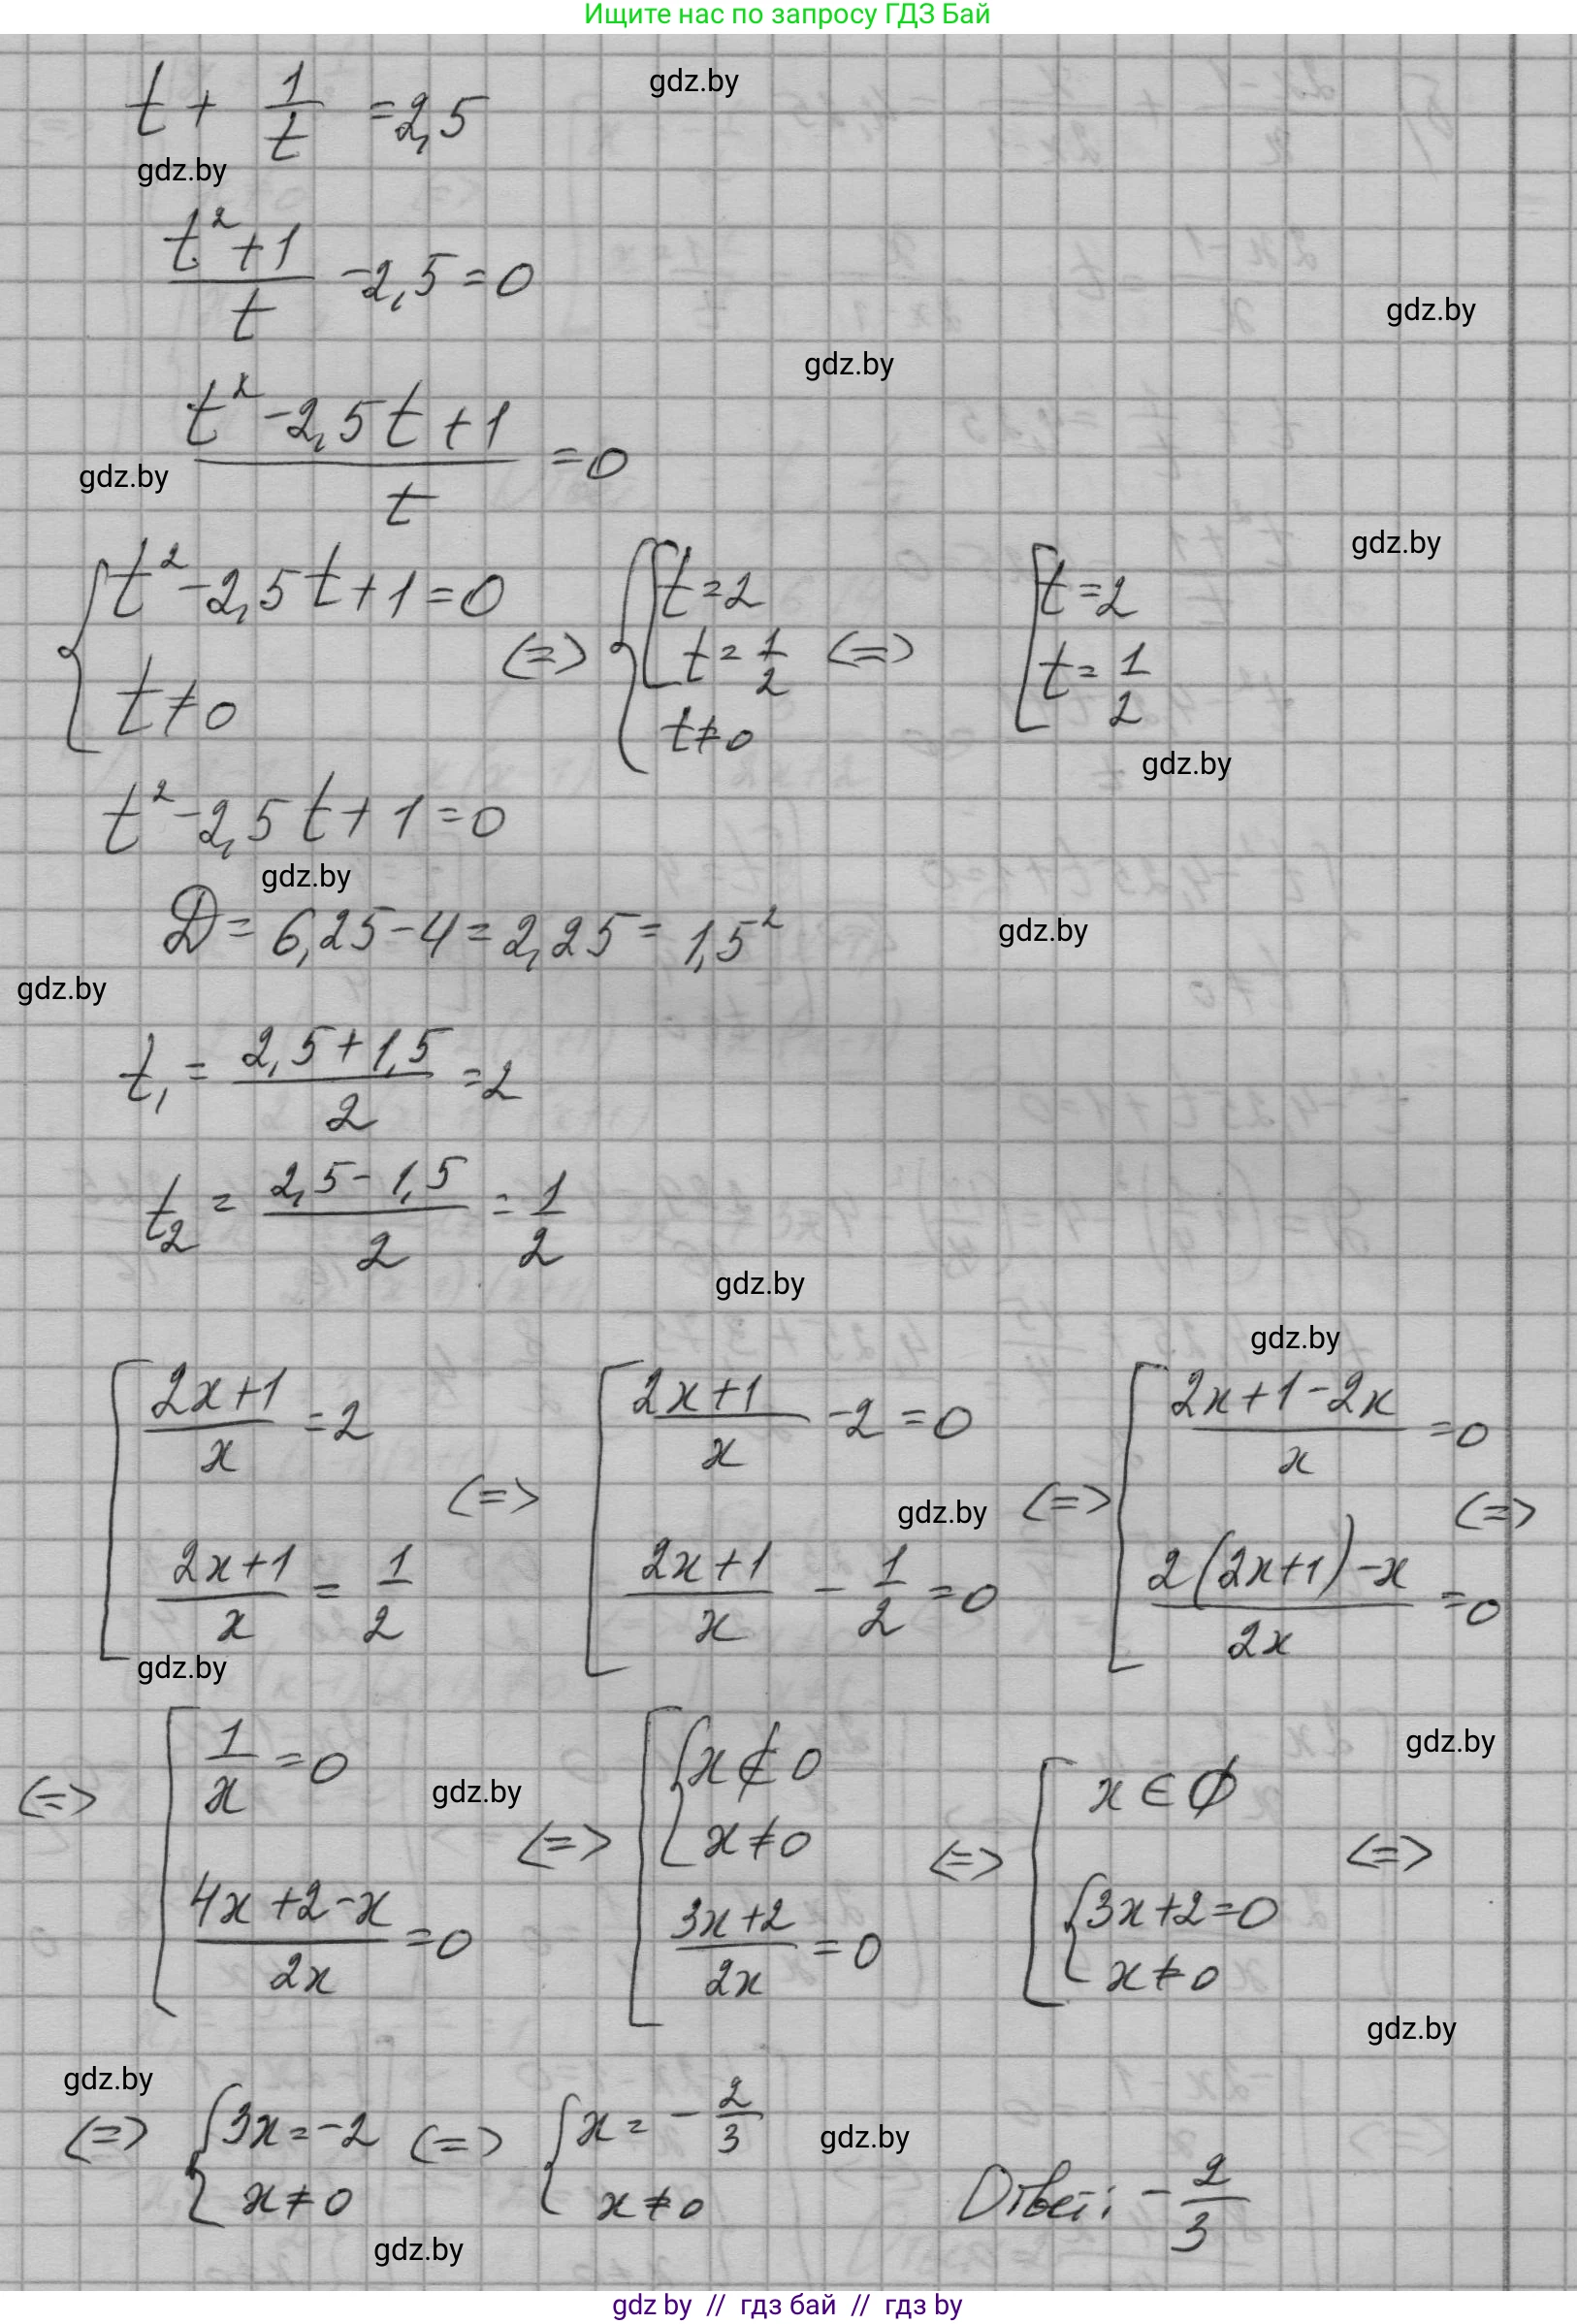 Ищите нас по запросу ГДЗ Бай
gdz.by
t + 1/t = 2,5
gdz.by
(t² + 1)/t - 2,5 = 0
gdz.by
gdz.by
(t² - 2,5t + 1)/t = 0
gdz.by
gdz.by
{ t² - 2,5t + 1 = 0 ; t ≠ 0 <=> { [ t = 2 ; t = 1/2 ; t ≠ 0 <=> [ t = 2 ; t = 1/2
gdz.by
t² - 2,5t + 1 = 0
gdz.by
D = 6,25 - 4 = 2,25 = 1,5²
gdz.by
gdz.by
t₁ = (2,5 + 1,5)/2 = 2
t₂ = (2,5 - 1,5)/2 = 1/2
gdz.by
gdz.by
[ (2x+1)/x = 2 ; (2x+1)/x = 1/2 <=> [ (2x+1)/x - 2 = 0 ; (2x+1)/x - 1/2 = 0 <=> [ (2x+1-2x)/x = 0 ; (2(2x+1)-x)/2x = 0 <=>
gdz.by
gdz.by
gdz.by
<=> [ 1/x = 0 ; (4x+2-x)/2x = 0 <=> [ { x ∉ 0 ; x ≠ 0 ; (3x+2)/2x = 0 <=> [ x ∈ ∅ ; { 3x+2=0 ; x ≠ 0 <=>
gdz.by
gdz.by
gdz.by
<=> { 3x = -2 ; x ≠ 0 <=> { x = -2/3 ; x ≠ 0
gdz.by
Ответ: -2/3
gdz.by
gdz by // гдз бай // гдз by